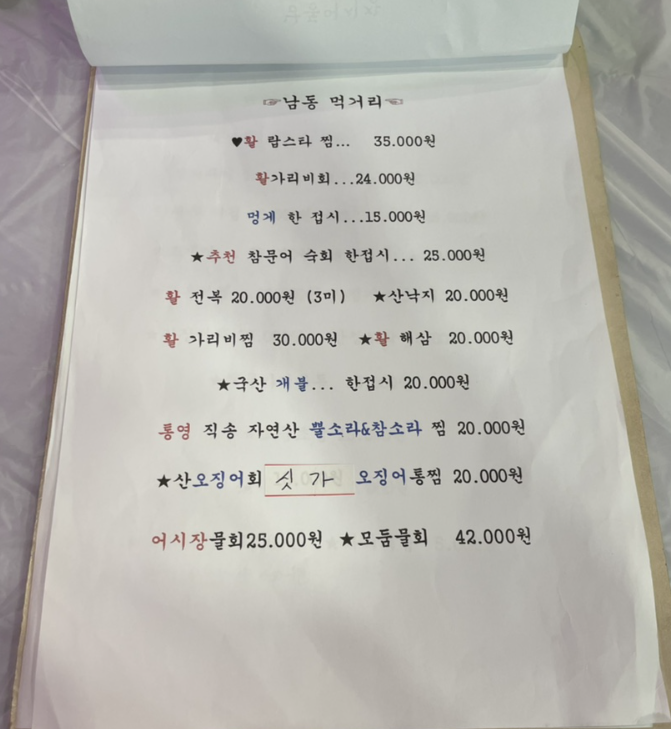 ☞남동 먹거리☜
♥활 랍스타 찜... 35.000원
활가리비회...24.000원
멍게 한 접시...15.000원
★추천 참문어 숙회 한접시... 25.000원
활 전복 20.000원 (3미) ★산낙지 20.000원
활 가리비찜 30.000원 ★활 해삼 20.000원
★국산 개불... 한접시 20.000원
통영 직송 자연산 뿔소라&참소라 찜 20.000원
★산오징어회 싯가 오징어통찜 20.000원
어시장물회25.000원 ★모둠물회 42.000원